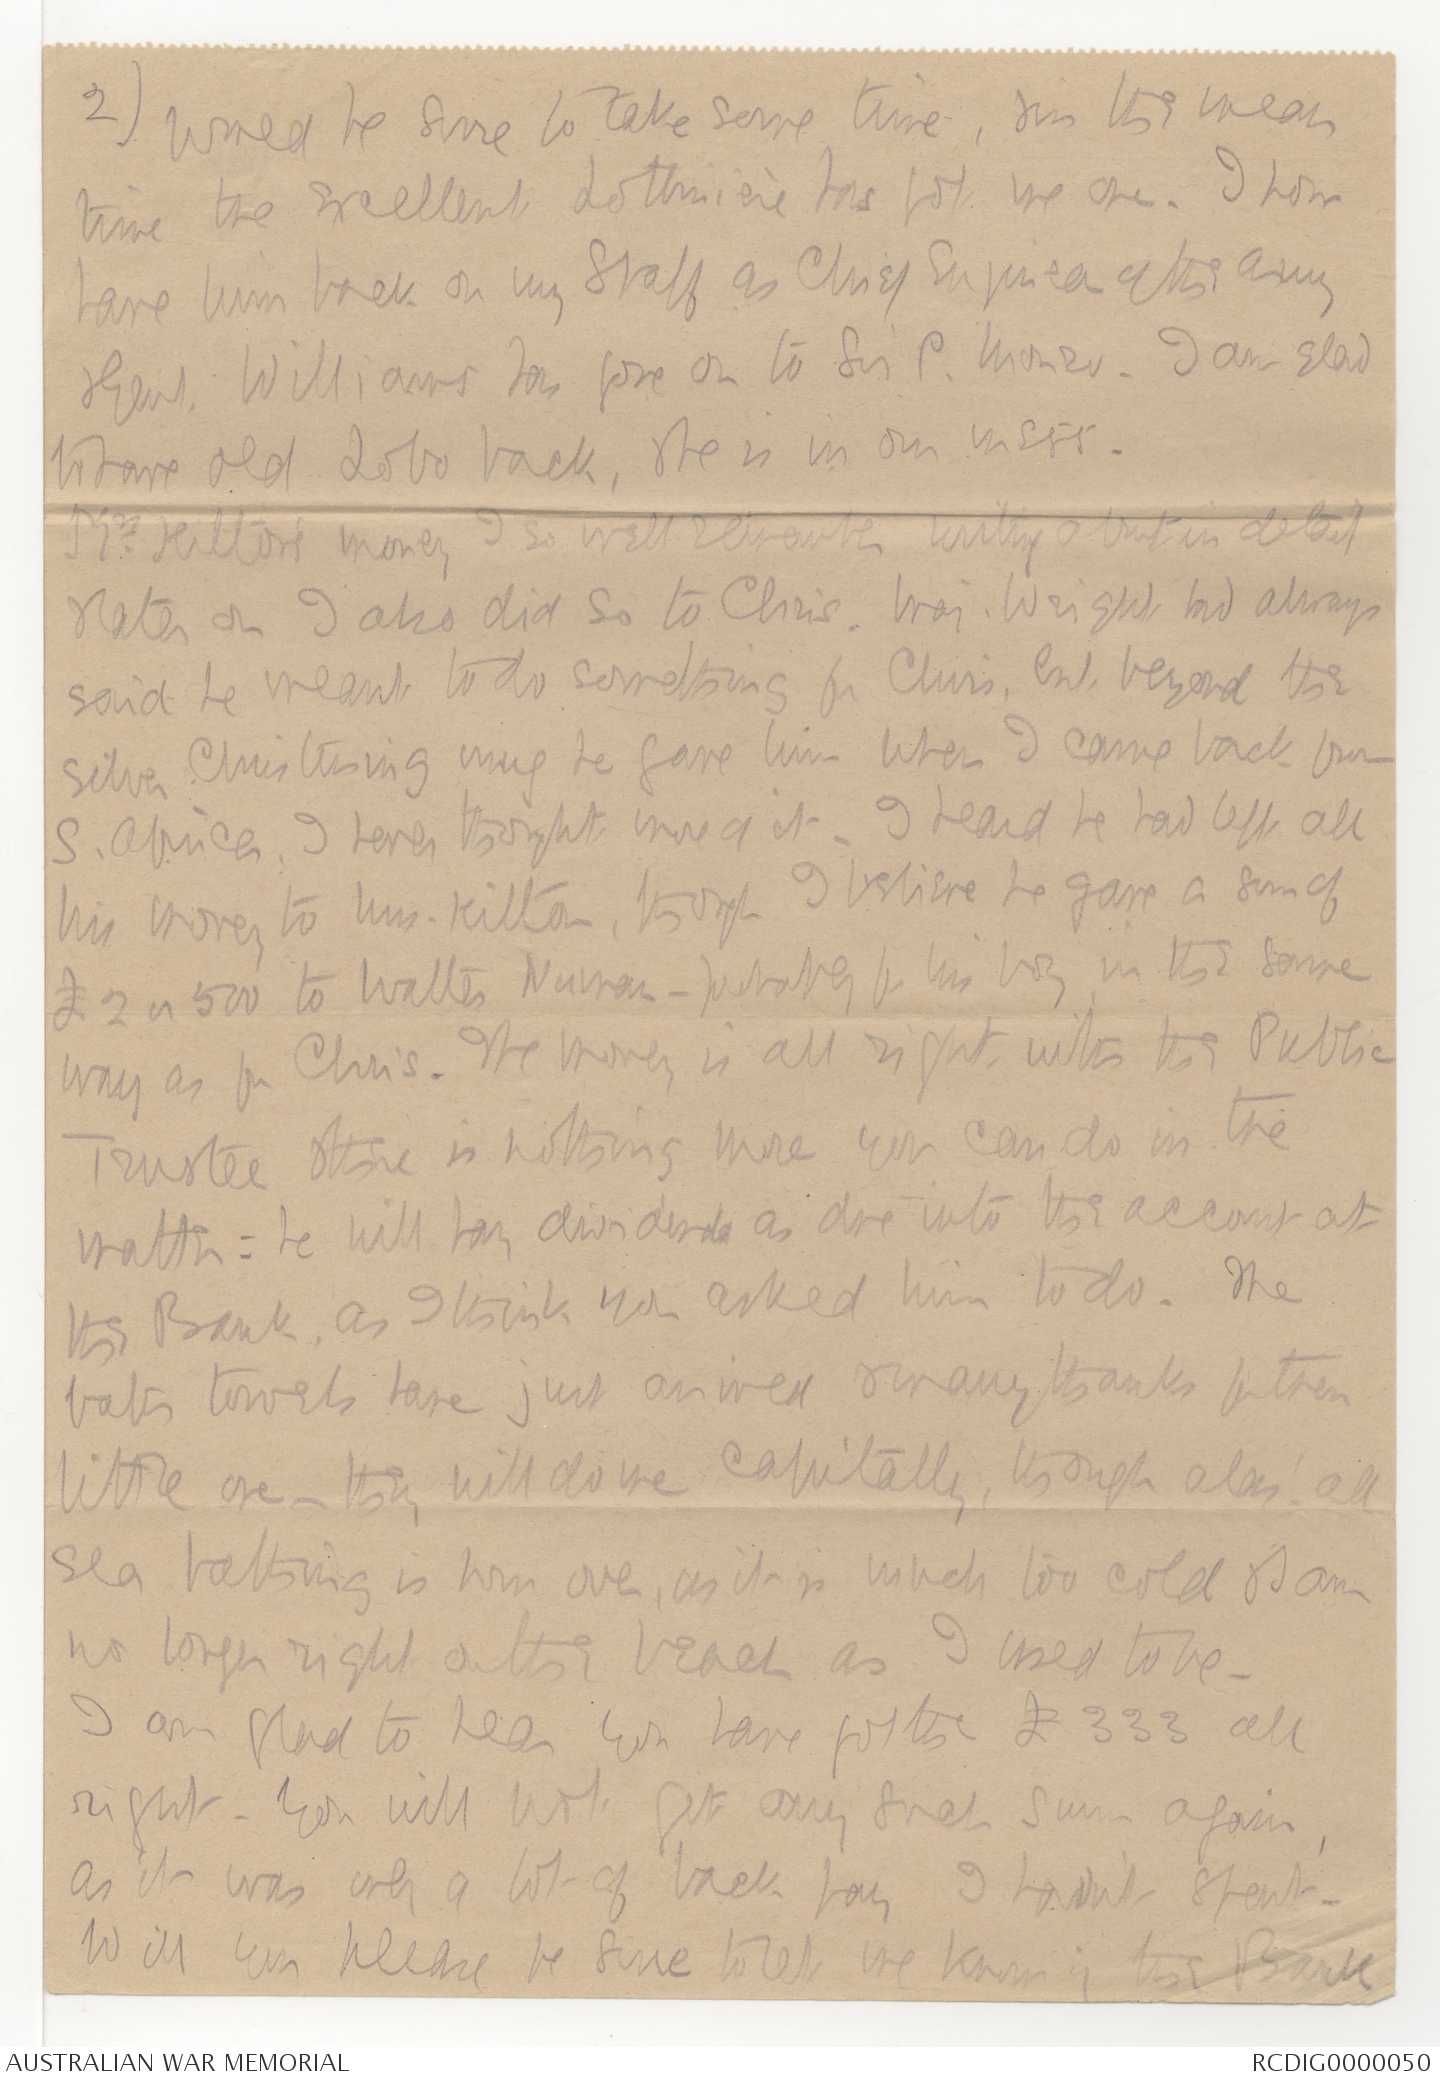 2) would be sure to take some time, & in the mean
time the excellent Lotbinière has got me one. I now
have him back on my Staff as Chief Engineer of the Army
& Genl. Williams has gone on to Sir C. Monro. I am glad
to have old Lobo back, & he is in our mess.
Mrs. Kilton's money I so well remember writing about in detail
& later on I also did so to Chris. Maj. Wright had always
said he meant to do something for Chris, but beyond the
silver Christening mug he gave him when I came back from
S. Africa, I never thought more of it. I heard he had left all
his money to Mrs. Kilton, though I believe he gave a sum of
£2 or 500 to Walter - probably for his boy, in the same
way as for Chris. The money is all right with the Public
Trustee & there is nothing more you can do in the
matter = he will pay dividends as due into the account at
the Bank, as I think you asked him to do. The
bath towels have just arrived & many thanks for them
little one - they will do me capitally, though alas! all
sea bathing is now over, as it is much too cold & I am
no longer right on the beach as I used to be -
I am glad to hear you have got the £333 all
right - You will not get any such sum again,
as it was only a lot of back pay I hadn't spent -
Will you please be sure to let me know if the Bank
AUSTRALIAN WAR MEMORIAL
RCDIG0000050